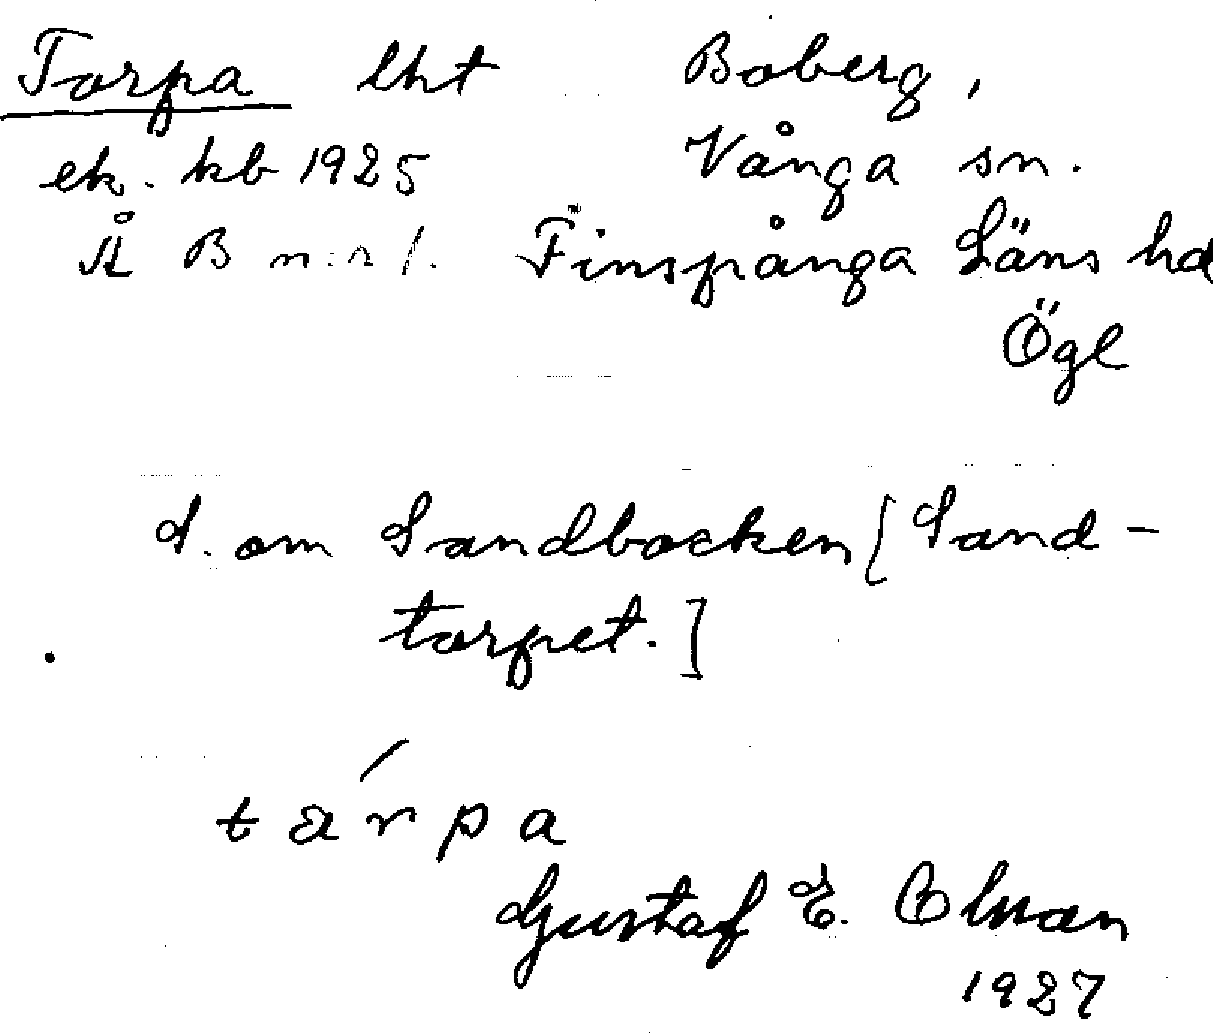 Torpa lht Boberg,
ek. kb 1925 Vånga sn.
Å B n:r 1. Finspånga Läns hd
Ögl
S. om Sandbocken [Sand-
torpet.]
tárpa
Gustaf E. Olson
1927